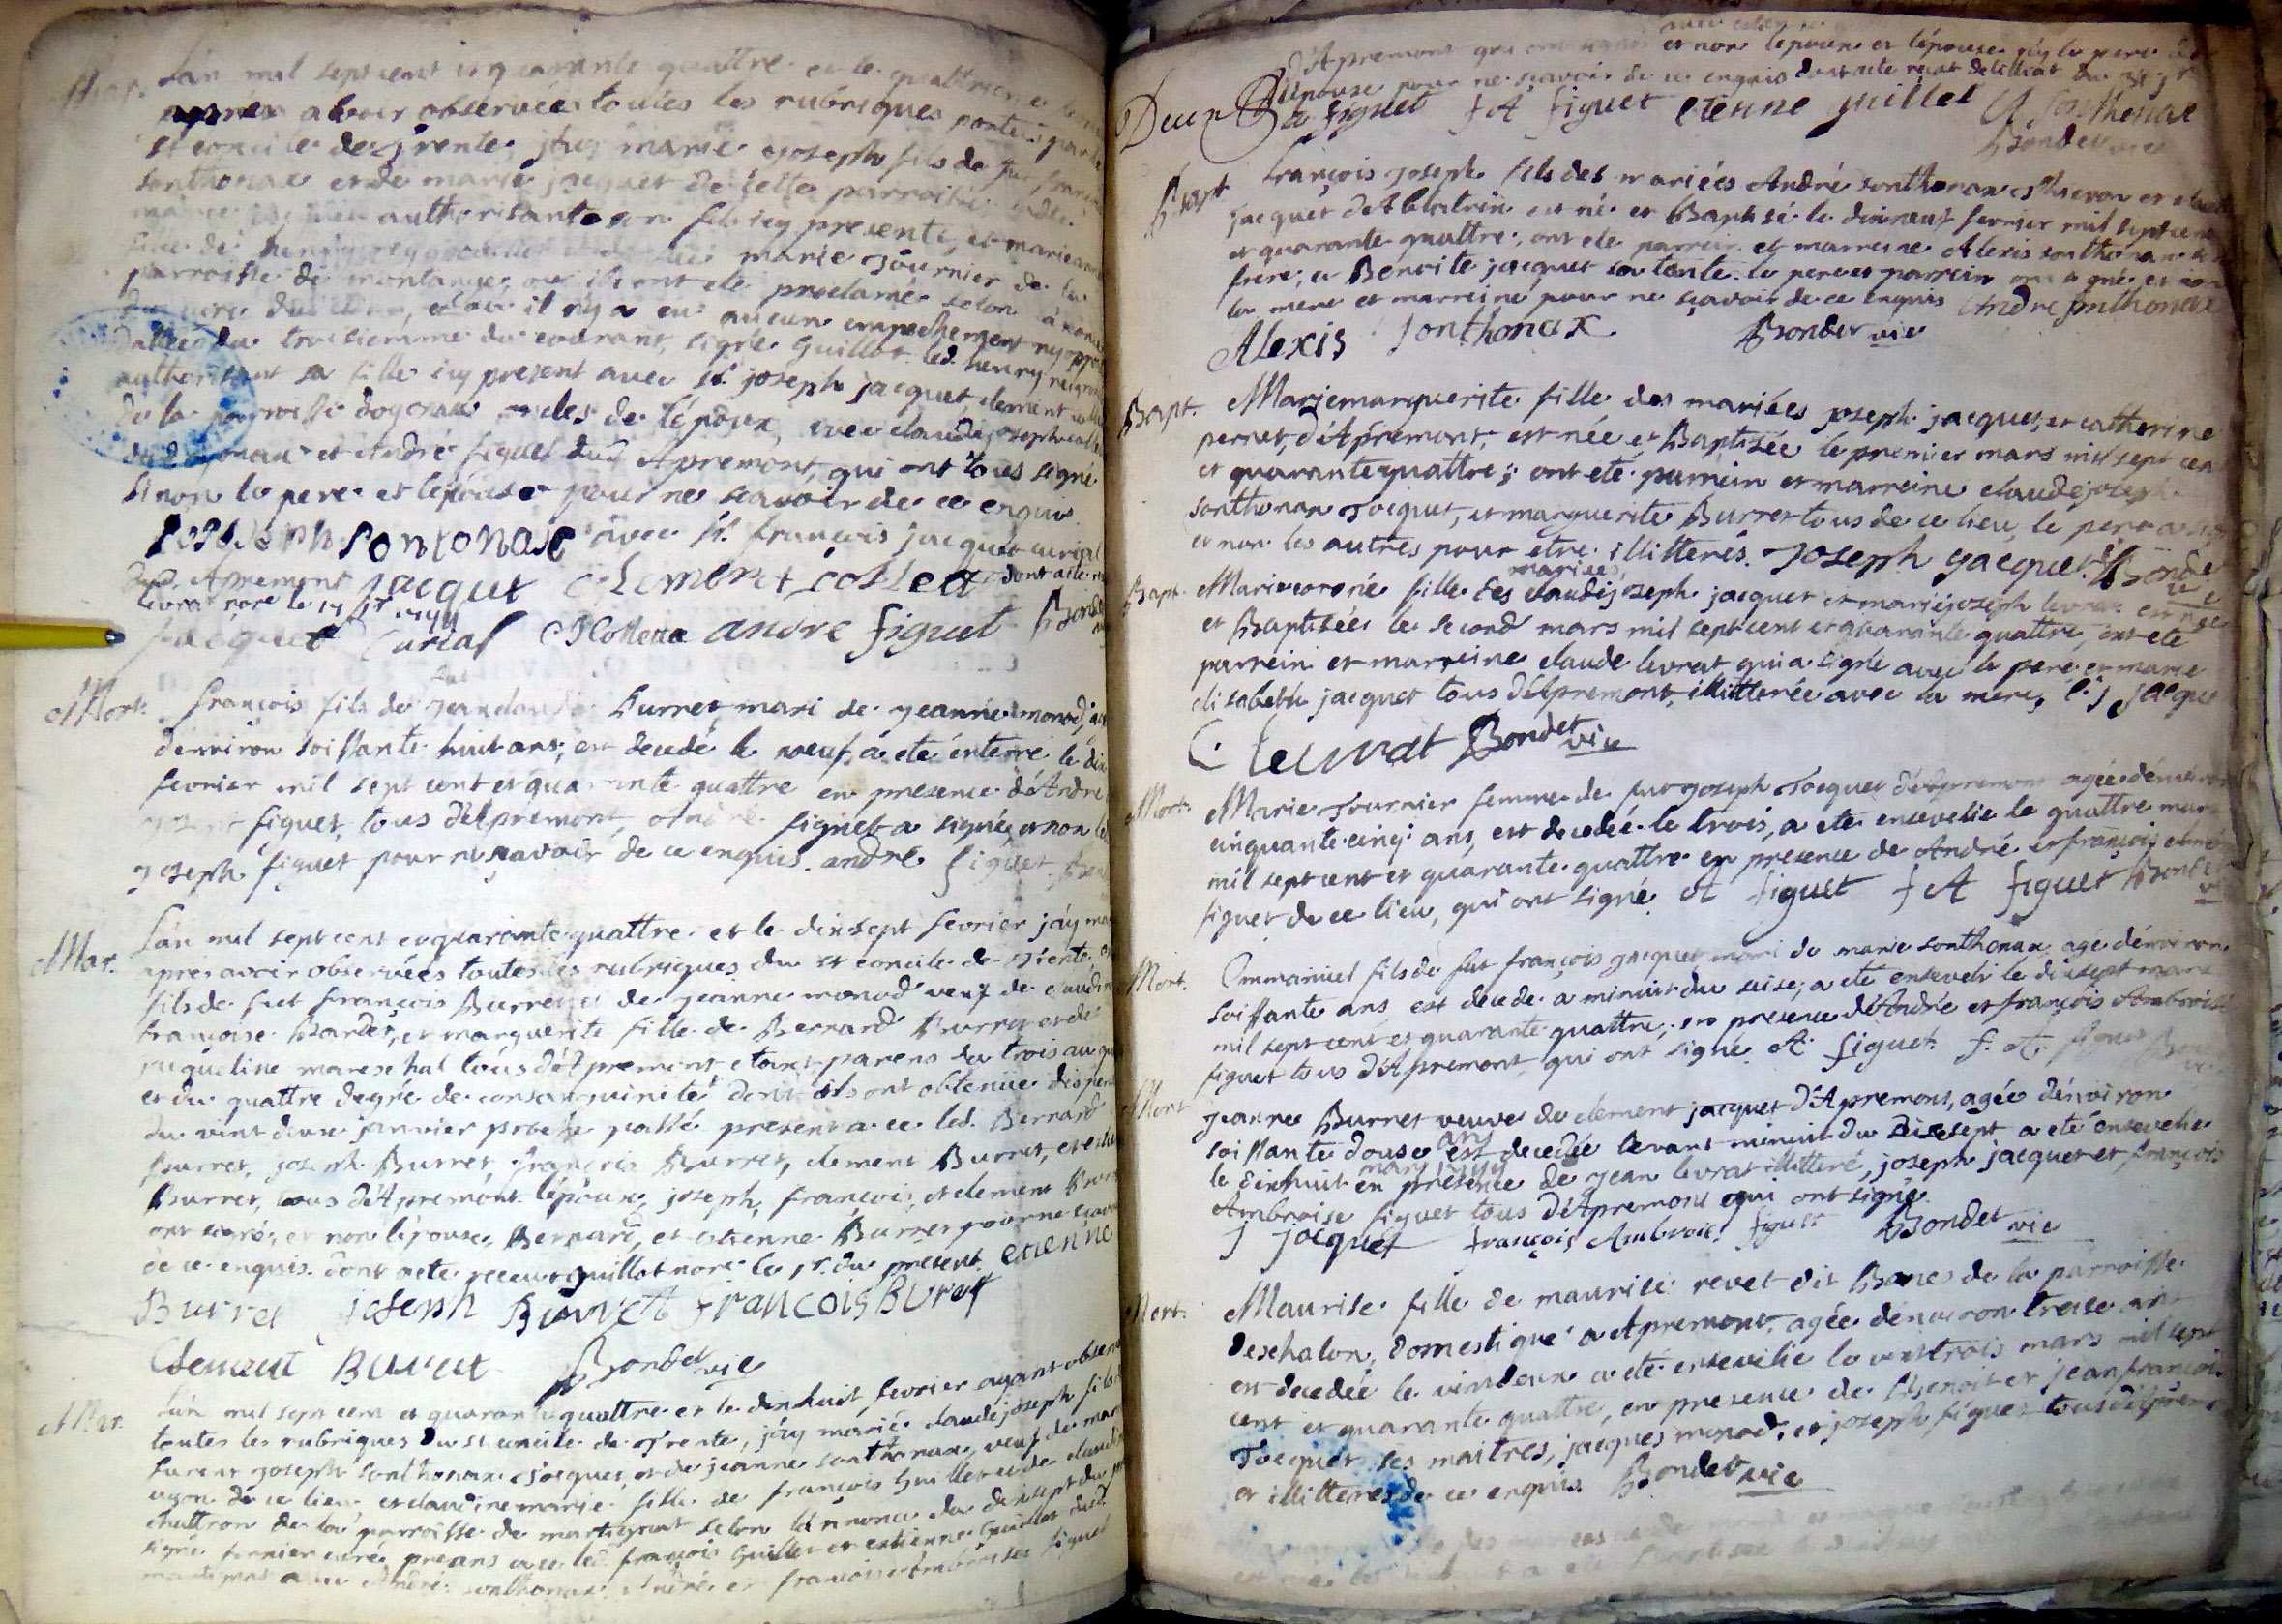 Mar. L'an mil sept cent et quarante quattre et le quattrieme
apres avoir observées toutes les rubriques portées par le
st concile de trente j'ay marié joseph fils de
sonthonax et de marie jacquet de cette parroisse
authorisante son fils icy presente, et marie
fille de henry marie Tournier de la
parroisse de montange, ou ils ont été proclamé selon
il n'y a eu aucun empechement ny
dattée du troisiemme du courant, signé Guillot. led. henry
authorisant sa fille icy present avec sr. joseph jacquet, clement
de la parroisse dogenax oncles de l'époux, avec claude joseph
et André figuet dud Apremont, qui ont tous signé
sinon le pere et l'épouse pour ne scavoir de ce enquis
JOSEPH SONTONAX avec sr. françois jacquet curial
dud. Apremont jacquet Clement colleta dont acte
livrat nore le
jacquet Curial CJ Colletta andre figuet Bondet
Mort. françois fils de feu jean claude Burret, mari de jeanne monod,
d'environ soissante huit ans, est decedé le noeuf, a eté enterré le dix
fevrier mil sept cent et quarante quattre en presence d'André
figuet, tous d'Apremont, andré figuet a signé, et non le
joseph figuet pour ne scavoir de ce enquis. andré figuet
Mar. L'an mil sept cent et quarante quattre et le dix sept fevrier j'ay
apres avoir observées toutes les rubriques du st concile de trente,
fils de feu françois Burret et de jeanne monod veuf de claudine
françoise Bardet, et marguerite fille de Bernard Burret et de
jaqueline mareschal tous d'Apremont etant parens du trois au
et du quattre degrée de consanguinité dont ils ont obtenüe dispense
du vint deux janvier proche passé present a ce led. Bernard
Burret, joseph Burret, françois Burret, clement Burret, et
Burret, tous d'Apremont. l'époux, joseph, françois, et clement
ont signé, et non l'épouse, Bernard, et estienne Burret pour ne
de ce enquis. dont acte receu Guillot nore le 15. du present. etienne
Burret joseph Burret françois Buret
Clement Buret Bondet vic
Mar. L'an mil sept cent et quarante quattre et le dix huit fevrier ayant observé
toutes les rubriques du st concile de Trente, j'ay marié claude joseph fils
joseph sonthonax jacquet, et de jeanne sonthonax, veuf de
de ce lieu et claudine marie fille de françois Guillet et de
chattron de la parroisse de martignat selon l'annonce du dix sept du
signé curé presans a ce led. françois Guillet et estienne Guillet dud.
martignat avec André sonthonax, André et françois ambroise figuet
d'Apremont qui ont signés et non l'époux et l'épouse ny le pere de
l'épouse pour ne scavoir de ce enquis dont acte
Deux A figuet f A figuet etienne guillet A sonthonax
Bondet vic
Bapt. françois joseph fils des mariées André sonthonax et
jacquet d'Apremont est né et Baptisé le dixneuf fevrier mil sept cent
et quarante quattre, ont eté parrein et marreine Alexis sonthonax son
frere, et Benoite jacquet sa tante. le pere et parrein ont signé, et non
la mere et marreine pour ne scavoir de ce enquis André sonthonax
Alexis sonthonax Bondet vic
Bapt. Marie marguerite fille des mariées joseph jacquet, et catherine
pernet, d'Apremont, est née et Baptisée le premier mars mil sept cent
et quarante quattre; ont eté parrein et marreine claude joseph
sonthonax Jacquet, et marguerite Burret tous de ce lieu, le pere a signé
et non les autres pour etre illitterés. Joseph jacquet Bondet
vic
Bapt. Marie fille des mariées claude joseph jacquet et marie joseph levrat est née
et Baptisée le second mars mil sept cent et quarante quattre, ont eté
parrein et marreine claude levrat qui a signé avec le pere et marie
elisabeth jacquet tous d'Apremont, illitterée avec la mere, C. j jacquet
C. levrat Bondet vic
Mort. Marie Tournier femme de feu joseph Jacquet d'Apremont agée d'environ
cinquante cinq ans, est decedée le trois, a eté ensevelie le quattre mars
mil sept cent et quarante quattre en presence de André et françois ambroise
figuet de ce lieu, qui ont signé A figuet f A figuet Bondet
vic
Mort. Emmanuel fils de feu françois jacquet mari de marie sonthonax agé d'environ
soissante ans est decedé a minuit du seise, a eté enseveli le dixsept mars
mil sept cent et quarante quattre, en presence d'André et françois Ambroise
figuet tous d'Apremont qui ont signé A. figuet. f. A. figuet
Mort. jeanne Burret veuve de clement jacquet d'Apremont, agée d'environ
soissante douse ans est decedée devant minuit du dixsept a eté ensevelie
le dixhuit mars 1744 en presence de jean levrat illitteré, joseph jacquet et françois
Ambroise figuet tous d'Apremont qui ont signé.
J jacquet françois Ambroise figuet Bondet vic
Mort. Maurise fille de maurise revet dit Banes de la parroisse
deschalon, domestique a Apremont, agée d'environ treise ans
est decedée le vintdeux a eté ensevelie le vint trois mars mil sept
cent et quarante quattre, en presence de Benoit et jean françois
Jacquet ses maitres, jacques monod, et joseph figuet tous d'Apremont
et illitterés de ce enquis. Bondet vic